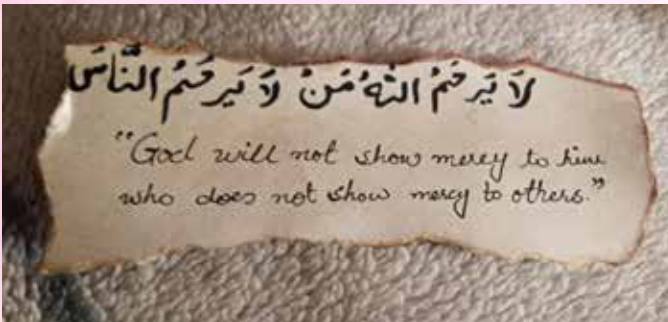 لَا يَرحَمُ اللهُ مَنْ لَا يَرحَمُ النَّاسَ
"God will not show mercy to him
who does not show mercy to others."